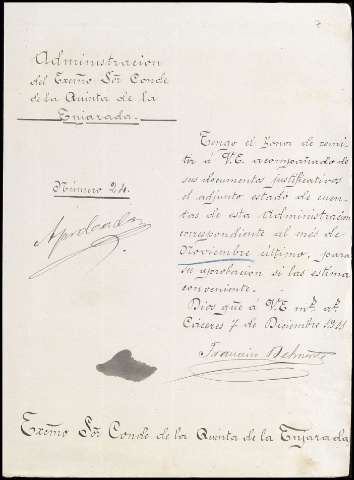 Administracion
del Exemo Sor Conde
de la Quinta de la
Enjarada.
Número 24.
Aprobado
Tengo el honor de remi-
tir á V.E. acompañado de
sus documentos justificativos
el adjunto estado de cuen-
tas de esta Administracion
correspondiente al mes de
Noviembre último, para
su aprobacion si las estima
conveniente.
Dios gue á V.E. ms. as.
Cáceres 7 de Diciembre 1911
Joaquin
Exemo Sor Conde de la Quinta de la Enjarada